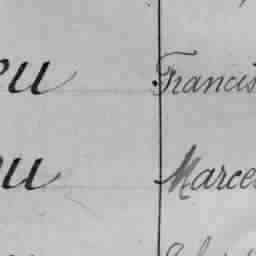 eu Francis
eu Marce